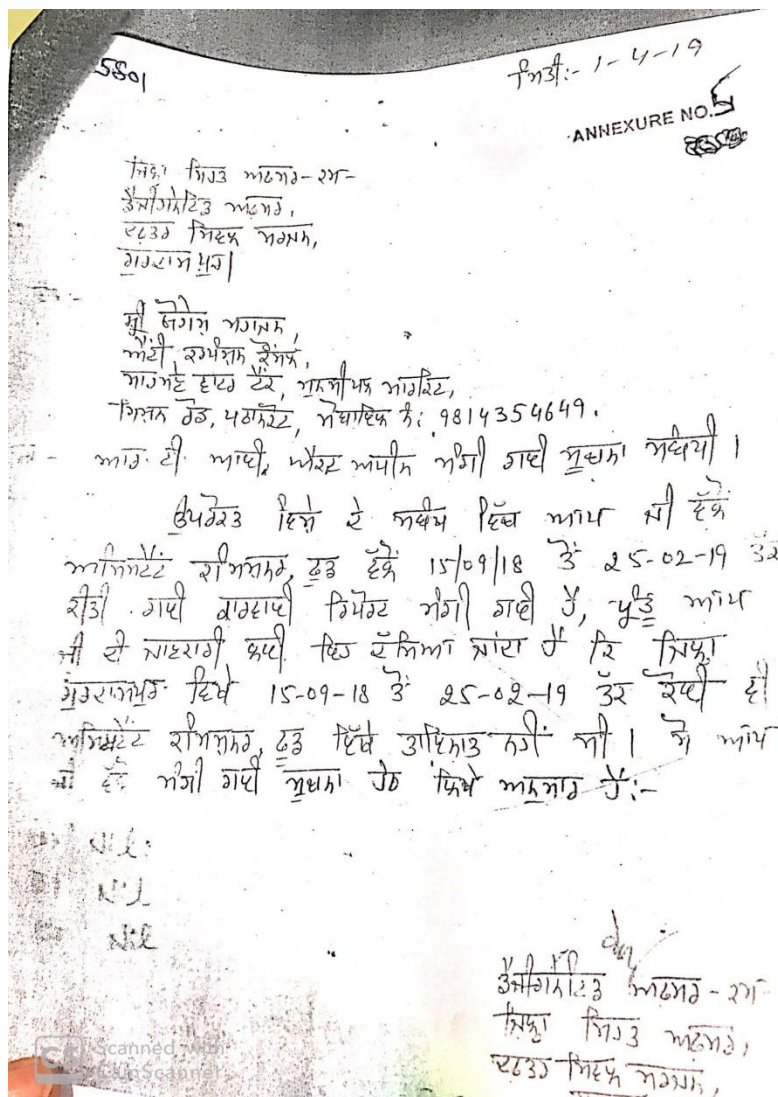 5801
ਮਿਤੀ:- 1-4-19
ANNEXURE NO. 5
ਜ਼ਿਲ੍ਹਾ ਸਿਹਤ ਅਫਸਰ-ਕਮ-
ਡੈਜੀਗਨੇਟਿਡ ਅਫਸਰ,
ਦਫ਼ਤਰ ਸਿਵਲ ਸਰਜਨ,
ਗੁਰਦਾਸਪੁਰ।
ਸ਼੍ਰੀ ਯੋਗੇਸ਼
ਐਂਟੀ ਕਰਪੱਸ਼ਨ ਕੌਂਸਲ,
ਸਾਹਮਣੇ ਵਾਟਰ ਟੈਂਕ, ਮੁਨਸੀਪਲ ਮਾਰਕਿਟ,
ਮਿਸ਼ਨ ਰੋਡ, ਪਠਾਨਕੋਟ, ਮੋਬਾਇਲ ਨੰ: 9814354649.
ਆਰ. ਟੀ. ਆਈ. ਐਕਟ ਅਧੀਨ ਮੰਗੀ ਗਈ ਸੂਚਨਾ ਸਬੰਧੀ।
ਉਪਰੋਕਤ ਵਿਸ਼ੇ ਦੇ ਸਬੰਧ ਵਿੱਚ ਆਪ ਜੀ ਵੱਲੋਂ
ਅਸਿਸਟੈਂਟ ਕਮਿਸ਼ਨਰ, ਫੂਡ ਵੱਲੋਂ 15/09/18 ਤੋਂ 25-02-19 ਤੱਕ
ਕੀਤੀ ਗਈ ਕਾਰਵਾਈ ਰਿਪੋਰਟ ਮੰਗੀ ਗਈ ਹੈ, ਪ੍ਰੰਤੂ ਆਪ
ਜੀ ਦੀ ਜਾਣਕਾਰੀ ਲਈ ਇਹ ਦੱਸਿਆ ਜਾਂਦਾ ਹੈ ਕਿ ਜਿਲ੍ਹਾ
ਗੁਰਦਾਸਪੁਰ ਵਿਖੇ 15-09-18 ਤੋਂ 25-02-19 ਤੱਕ ਕੋਈ ਵੀ
ਅਸਿਸਟੈਂਟ ਕਮਿਸ਼ਨਰ, ਫੂਡ ਇੱਥੇ ਤਾਇਨਾਤ ਨਹੀਂ ਸੀ। ਸੋ ਆਪ
ਜੀ ਵੱਲੋਂ ਮੰਗੀ ਗਈ ਸੂਚਨਾ ਹੇਠ ਲਿਖੇ ਅਨੁਸਾਰ ਹੈ:-
Nil
Nil
Nil
ਡੈਜੀਗਨੇਟਿਡ ਅਫਸਰ-ਕਮ-
ਜ਼ਿਲ੍ਹਾ ਸਿਹਤ ਅਫਸਰ,
ਦਫ਼ਤਰ ਸਿਵਲ ਸਰਜਨ,
CS Scanned with
CamScanner